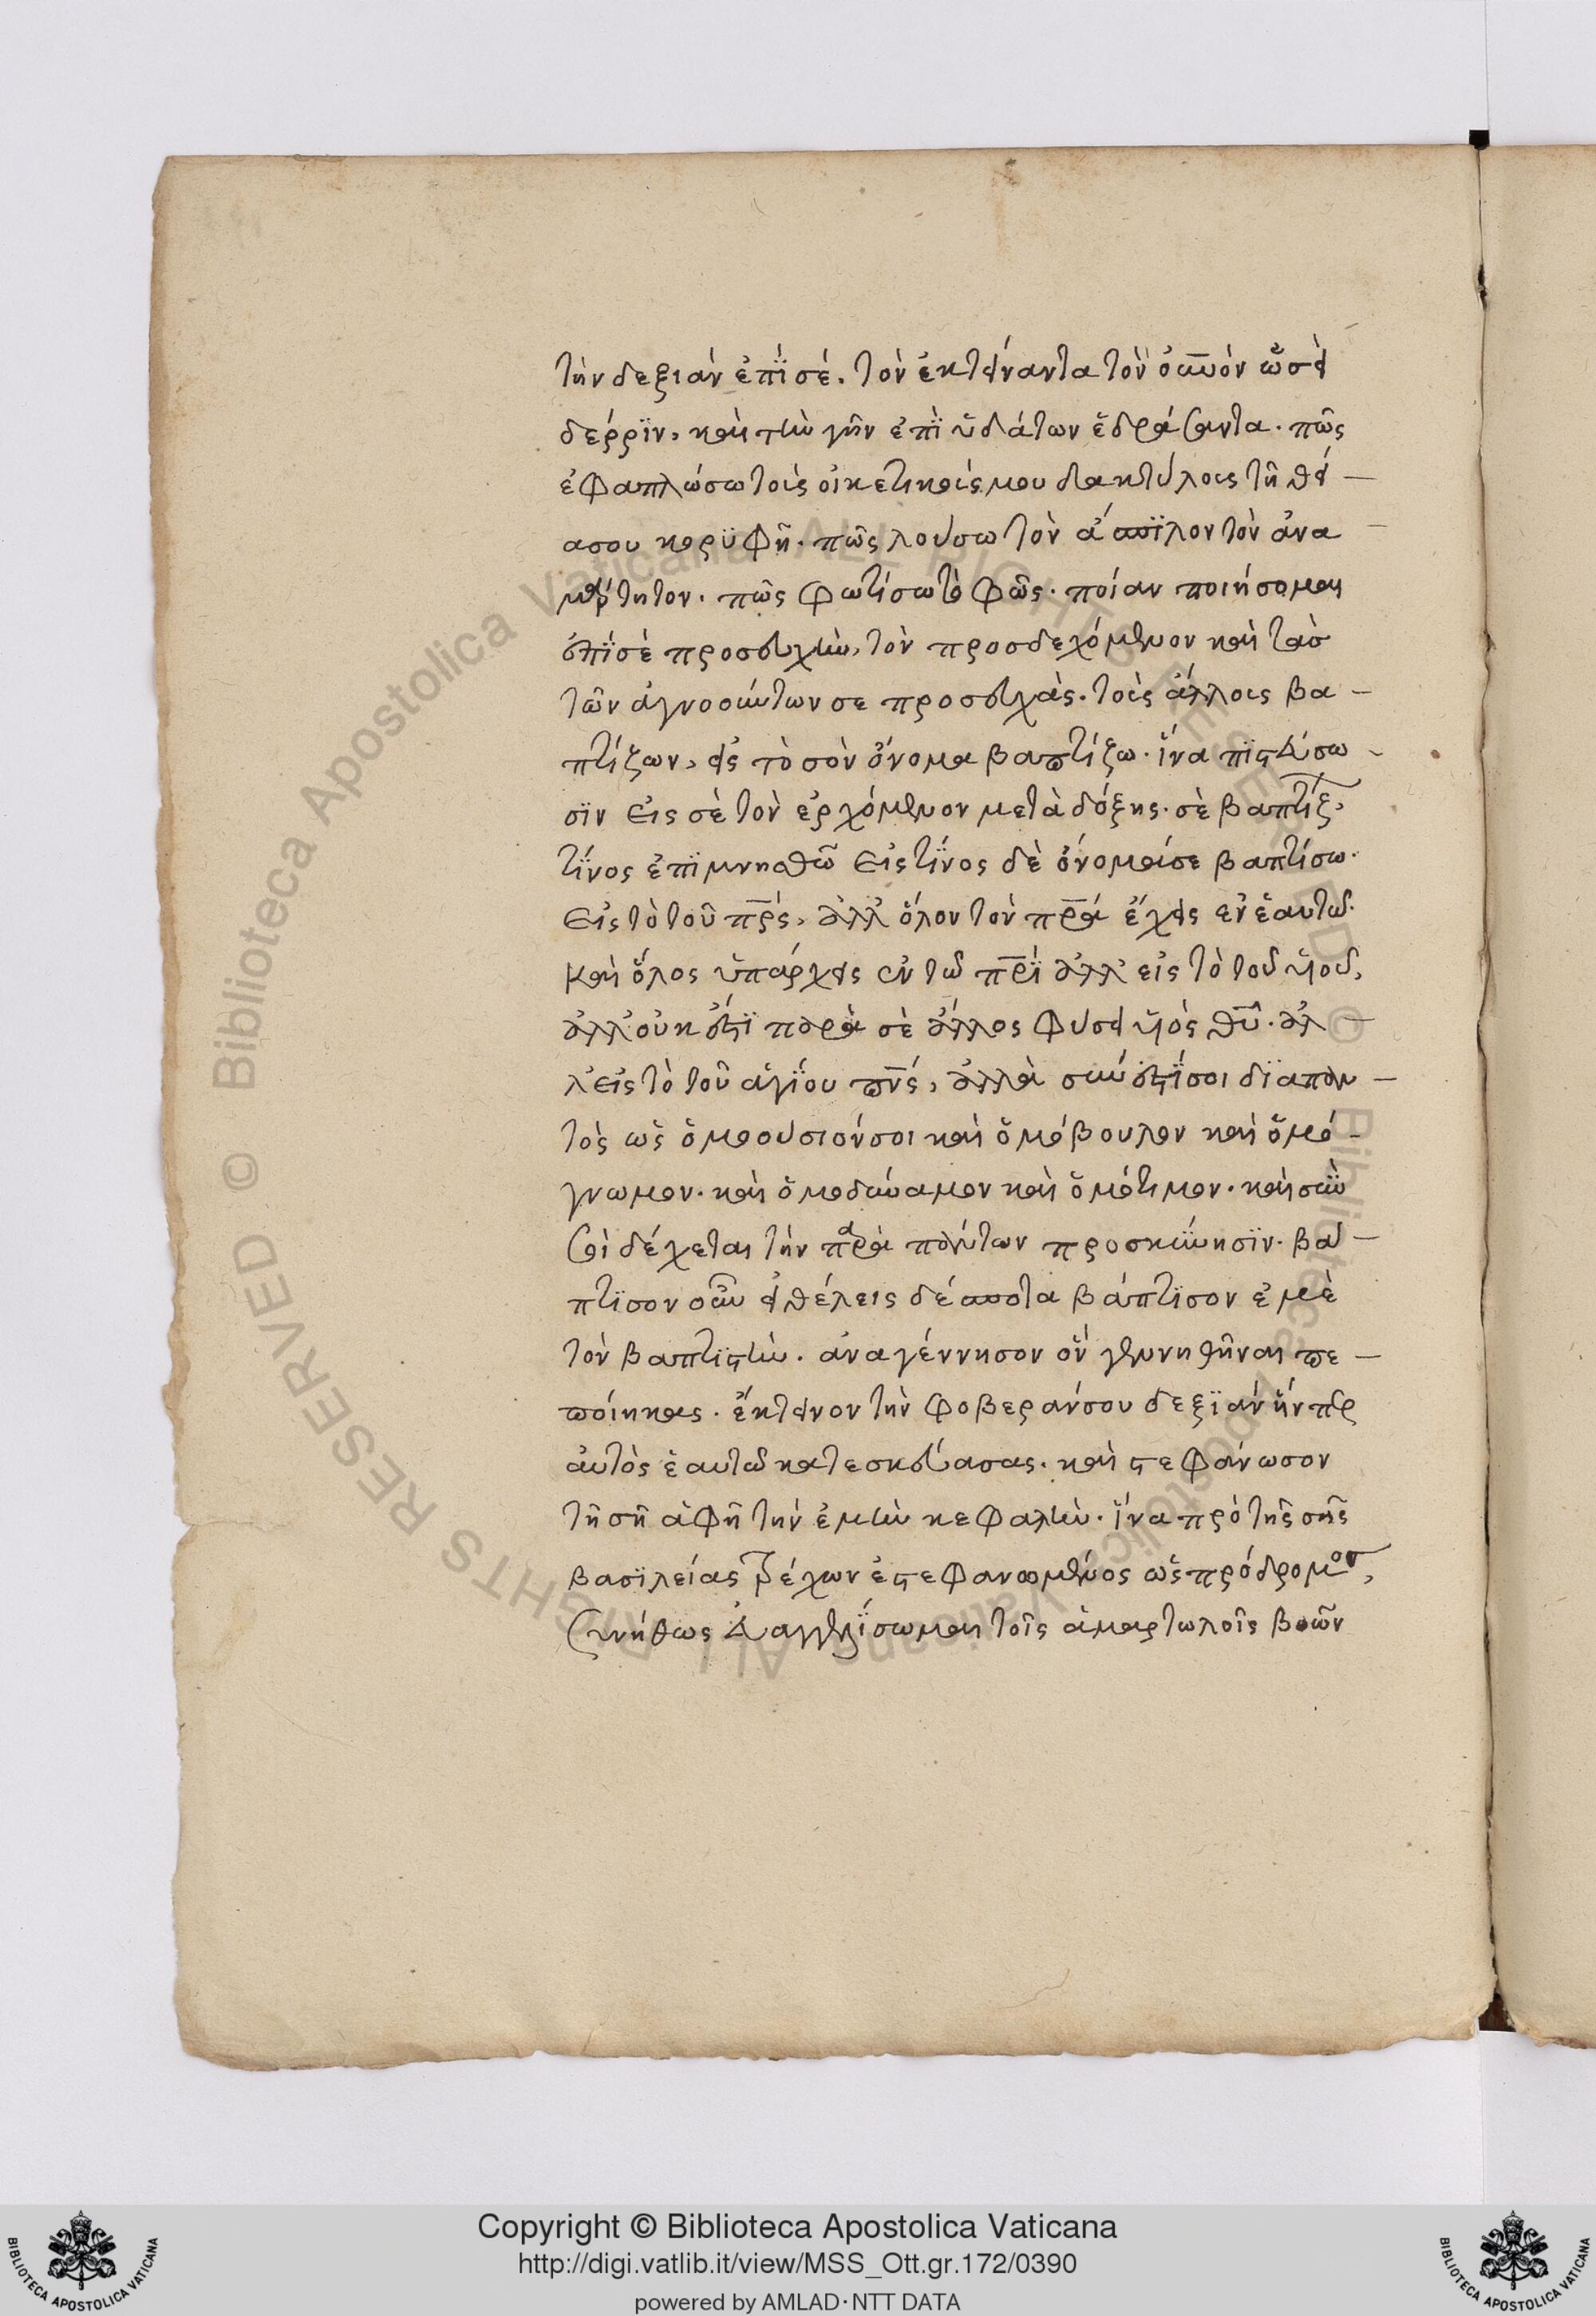 τὴν δεξιὰν ἐπῒ σέ. τὸν ἐκτείναντα τὸν οὐνὸν ὡσεὶ
δέρρϊν, καὶ τὴν γῆν ἐπῒ ὑδάτων ἑδράσαντα. πῶς
ἐφαπλώσω τοὶς οἰκετικοίς μου δακτύλοις τῆ θεί–
α σου κορϋφῆ. πῶς λούσω τὸν ἄσπϊλον τὸν ἀνα
μάρτητον. πῶς φωτίσω τὸ φῶς. ποίαν ποιήσομαι
ἐπῒ σὲ προσευχὴν, τὸν προσδεχόμενον καὶ τὰσ
τῶν ἀγνοούντων σε προσευχὰς. τοὶς ἄλλοις βα–
πτίζων, εἰς τὸ σὸν ὄνομα βαπτίζω. ἵνα πϊστεύσω–
σϊν εἰς σὲ τὸν ερχόμενον μετὰ δόξης. σὲ βαπτίζ,
τΐνος ἐπϊμνησθῶ εἰς τΐνος δὲ ὄνομαί σε βαπτίσω.
εἰς τὸ τοῦ πρς, ἀλλ' ὅλον τὸν πρα ἔχεις ἐν ἑαυτῶ.
καὶ ὅλος ὑπάρχεις ἐν τῶ πρϊ ἀλλ' εἰς τὸ τοῦ υἱοῦ,
ἀλλ' οὐκ ἔστϊ παρὰ σὲ ἄλλος φύσει υἱὸς θυ. ἀλ–
λ' εἰς τὸ τοῦ ἁγΐου πνς, ἀλλὰ σύν ἐστΐ σοι δϊαπαν–
τὸς ὡς ὁμοούσιόν σοι καὶ ὁμόβουλον καὶ ὁμό–
γνωμον. καὶ ὁμοδύναμον καὶ ὁμότιμον. καὶ σὺν
σοὶ δέχεται τὴν παρὰ πάντων προσκύνησϊν. βά–
πτϊσον οὖν εἰ θέλεις δέσποτα βάπτϊσον ἐμὲ
τὸν βαπτϊστὴν. ἀναγέννησον ὃν γεννηθῆναι πε–
ποίηκας. ἔκτεινον τὴν φοβεράν σου δεξϊάν ἥν περ
ἀυτὸς ἑαυτῶ κατεσκεύασας. καὶ στεφάνωσον
τῆ σῆ ἁφῆ τὴν ἐμὴν κεφαλὴν. ἵνα πρὸ τῆς σῆς
βασϊλείας τρέχων ἐστεφανωμένος ὡς πρόδρομοσ,
συνήθως εὐαγγελΐσωμαι τοῖς ἁμαρτωλοῖς βοῶν
Copyright © Biblioteca Apostolica Vaticana
http://digi.vatlib.it/view/MSS_Ott.gr.172/0390
powered by AMLAD·NTT DATA